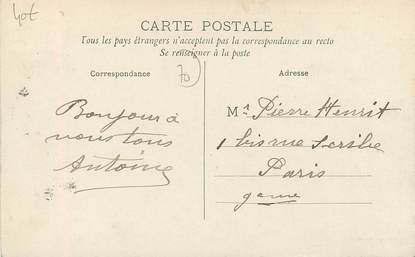 40t
CARTE POSTALE
Tous les pays étrangers n'acceptent pas la correspondance au recto
Se renseigner à la poste
Correspondance
70
Adresse
Bonjour à
vous tous
Antoine
Mr Pierre Henrit
1 bis rue Scribe
Paris